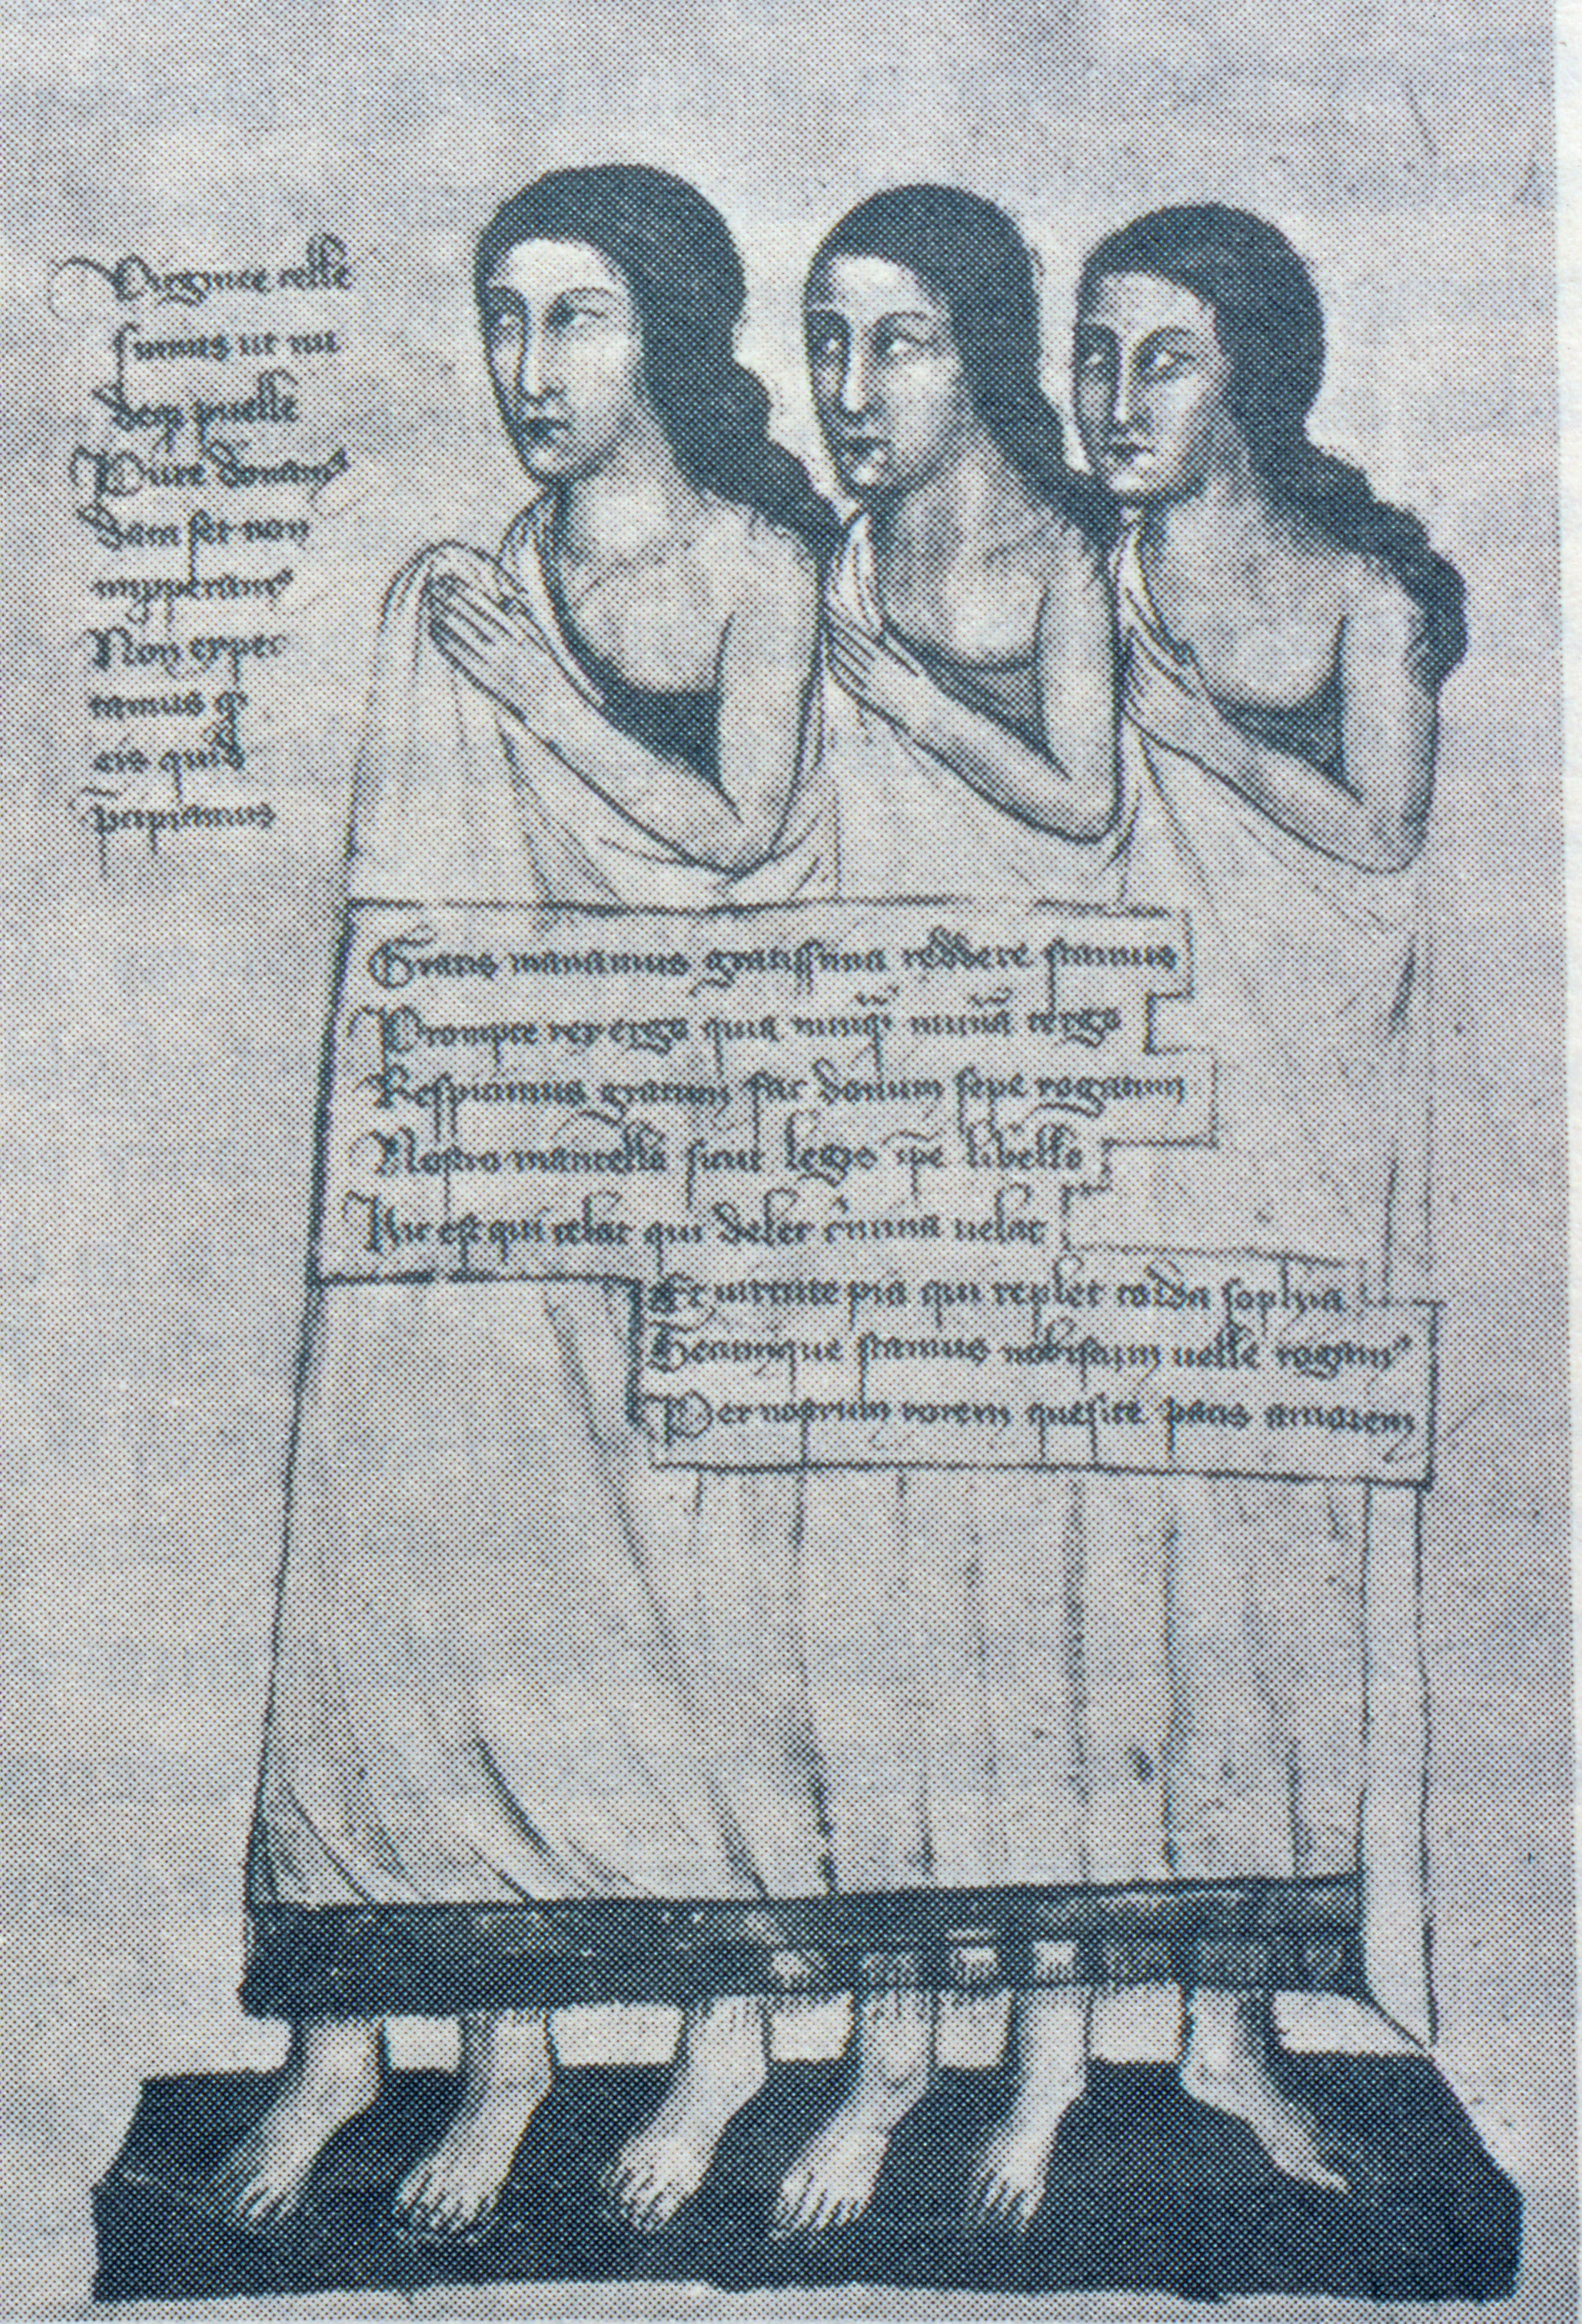 Virginee celle
sumus ut nu
deq puelle
Pure donam9
dam set non
Non expec
tamus q
eis quid
Gratis manamus gratissima reddere stamus
Prompte rex erga quia nunq nunia terga
Respiciamus gratum fac donum sepe rogatum
Nostro mantello sicut legis ipe libello
Hic est qui celat qui delet crimina uelat
Et uirtute pia qui replet corda sophya
stamus uelle rogam9
Per nostrum rorem quesite pacis amorem